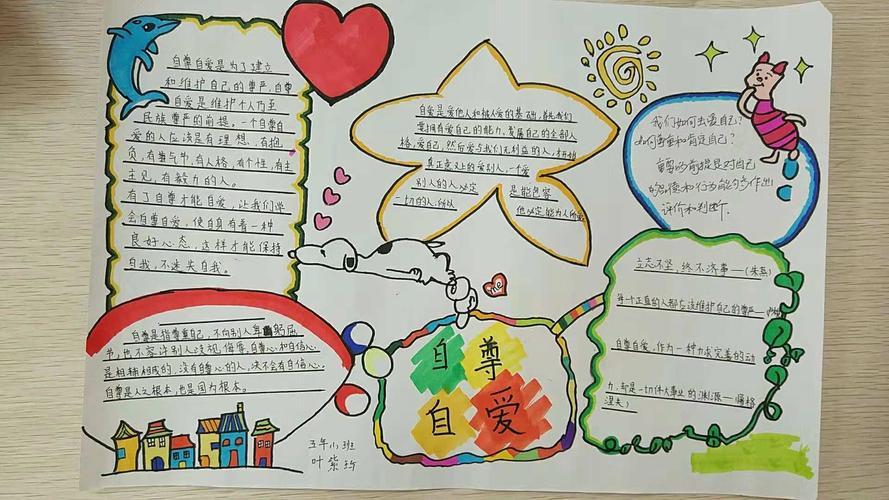 自尊自爱是为了建立
和维护自己的尊严,自尊
自爱是维护个人乃至
民族尊严的前提,一个自尊自
爱的人应该是有理想,有抱
负,有勇气,有人格,有个性,有主
主见,有毅力的人。
有了自尊才能自爱,让我们学
会自尊自爱,使自身有着一种
良好心态,这样才能保持
自我,不迷失自我。
自尊是指尊重自己,不向别人卑躬屈
节,也不容许别人歧视、侮辱,自尊心和自信心
是相辅相成的,没有自尊心的人,决不会有自信心.
自尊是人之根本,也是国之根本.
自爱是爱他人和被人爱的基础,首先我们
要拥有爱自己的能力,发展自己的全部人
格,爱自己,然后爱与我们无利益的人,才相
真正意义上的爱别人,一个爱
别人的人必定 是能包容
一切的人,所以 他必定能为人所爱
我们如何去爱自己?
如何尊重和肯定自己?
重要的前提是对自己
的思想和行为能够多作出
评价和判断.
立志不坚,终不济事——(朱熹)
每一个正直的人都应该维护自己的尊严——
自尊自爱,作为一种力求完善的动
力,却是一切伟大事业的渊源——(屠格
涅夫)
me
自尊
自爱
五年小班
叶紫